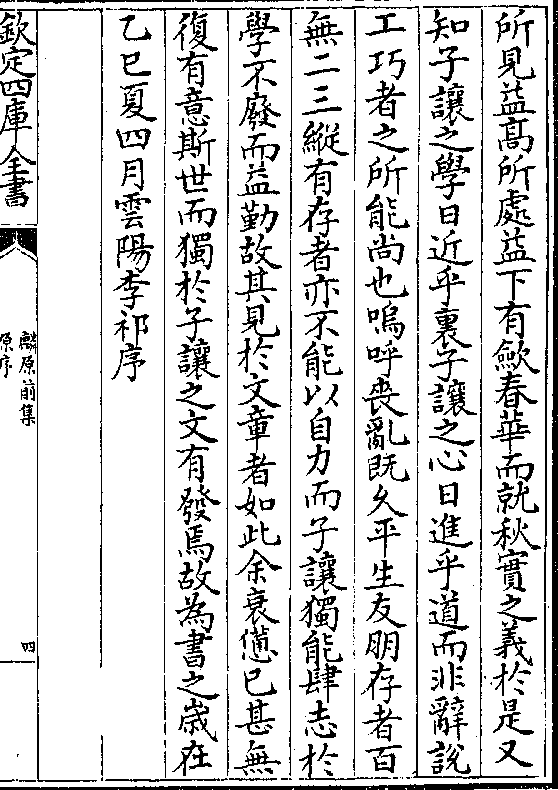 所見益髙所處益下有歛春華而就秋實之義於是又
知子讓之學日近乎裏子讓之心日進乎道而非辭説
工巧者之所能尚也嗚呼喪亂既久平生友朋存者百
無二三縱有存者亦不能以自力而子讓獨能肆志於
學不廢而益勤故其見於文章者如此余衰憊已甚無
復有意斯世而獨於子讓之文有發焉故為書之歲在
乙巳夏四月雲陽李祁序
欽定四庫全書
麟原前集
原序
四